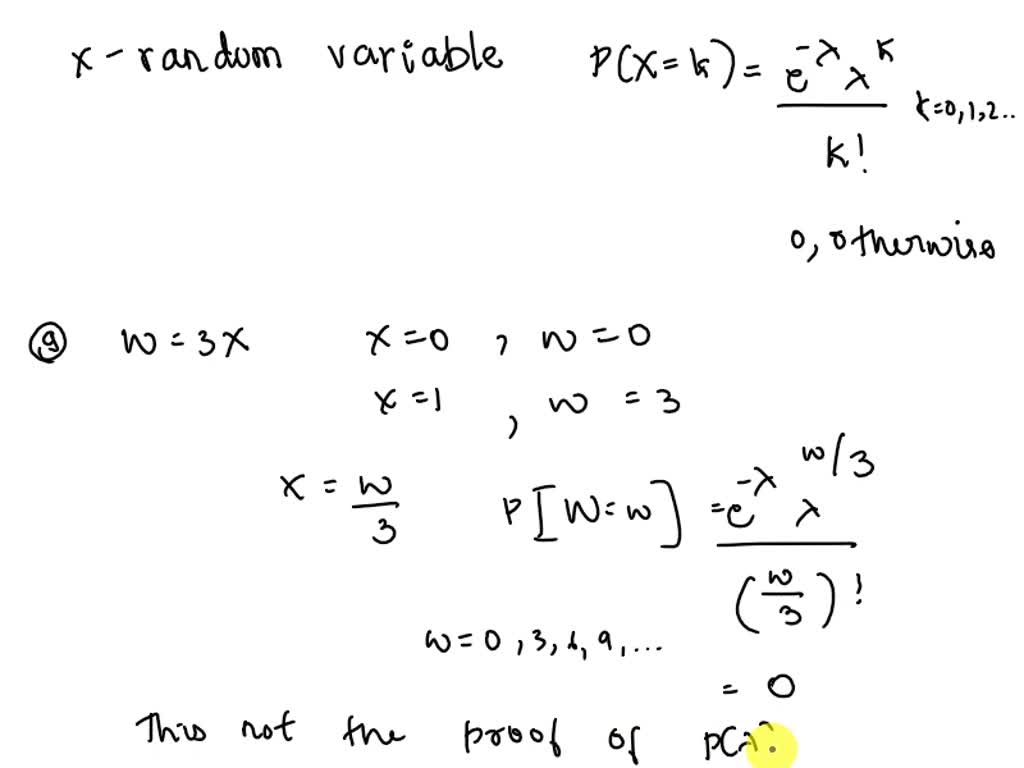 x - random variable P(X = k) = e^-λ λ^k / k! k=0,1,2..
0, otherwise
(a) W = 3X x = 0 , w = 0
x = 1 , w = 3
x = w/3 P[W = w] = e^-λ λ^w/3 / (w/3)!
w = 0, 3, 6, 9, ...
= 0
This not the proof of